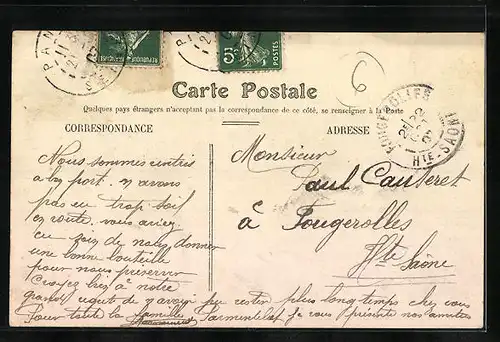 Carte Postale
Quelques pays étrangers n'acceptant pas la correspondance de ce côté, se renseigner à la Poste
CORRESPONDANCE
ADRESSE
5c
POSTES
6
FOUGEROLLES
Hte-SAÔNE
Nous sommes rentrés
à bon port. n'avons
pas eu trop soif
en route. vous aviez
eu soin de nous donner
une bonne bouteille
pour nous préserver
Croyez bien à notre
grand de n'avoir pu rester plus longtemps chez vous
Pour toute la famille Parmentelat je vous présente nos amitiés
Monsieur
Paul Cauteret
à Fougerolles
Hte Saône